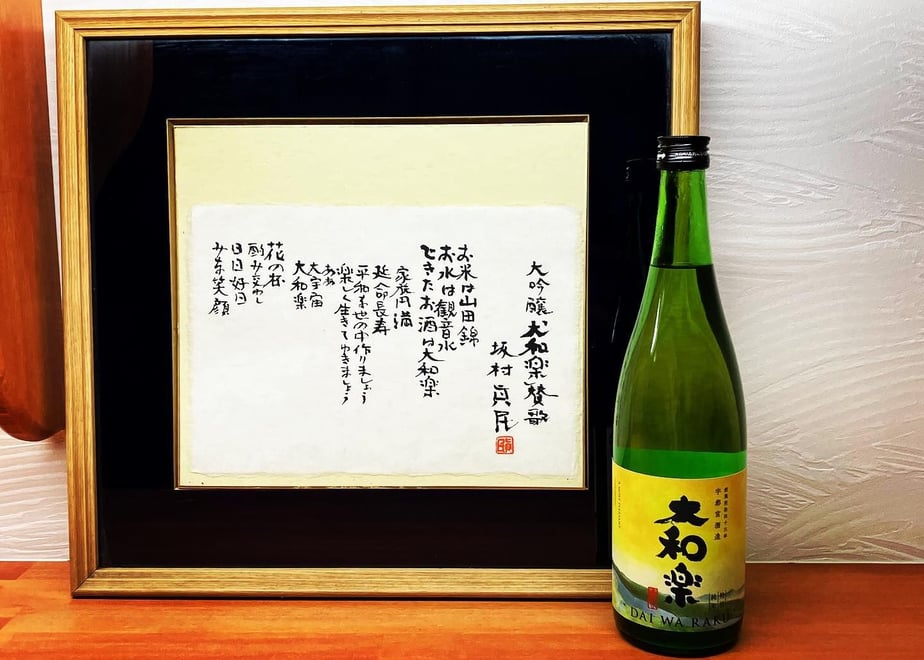 大吟醸大和楽賛歌
坂村真民
お米は山田錦
お水は観音水
できたお酒は大和楽
家庭円満
延命長寿
平和な世の中作りましょう
楽しく生きてゆきましょう
ああ
大宇宙
大和楽
花の杯
酌み交わし
日日好日
みな笑顔
宇都宮酒造
大和楽
DAI WA RAKU